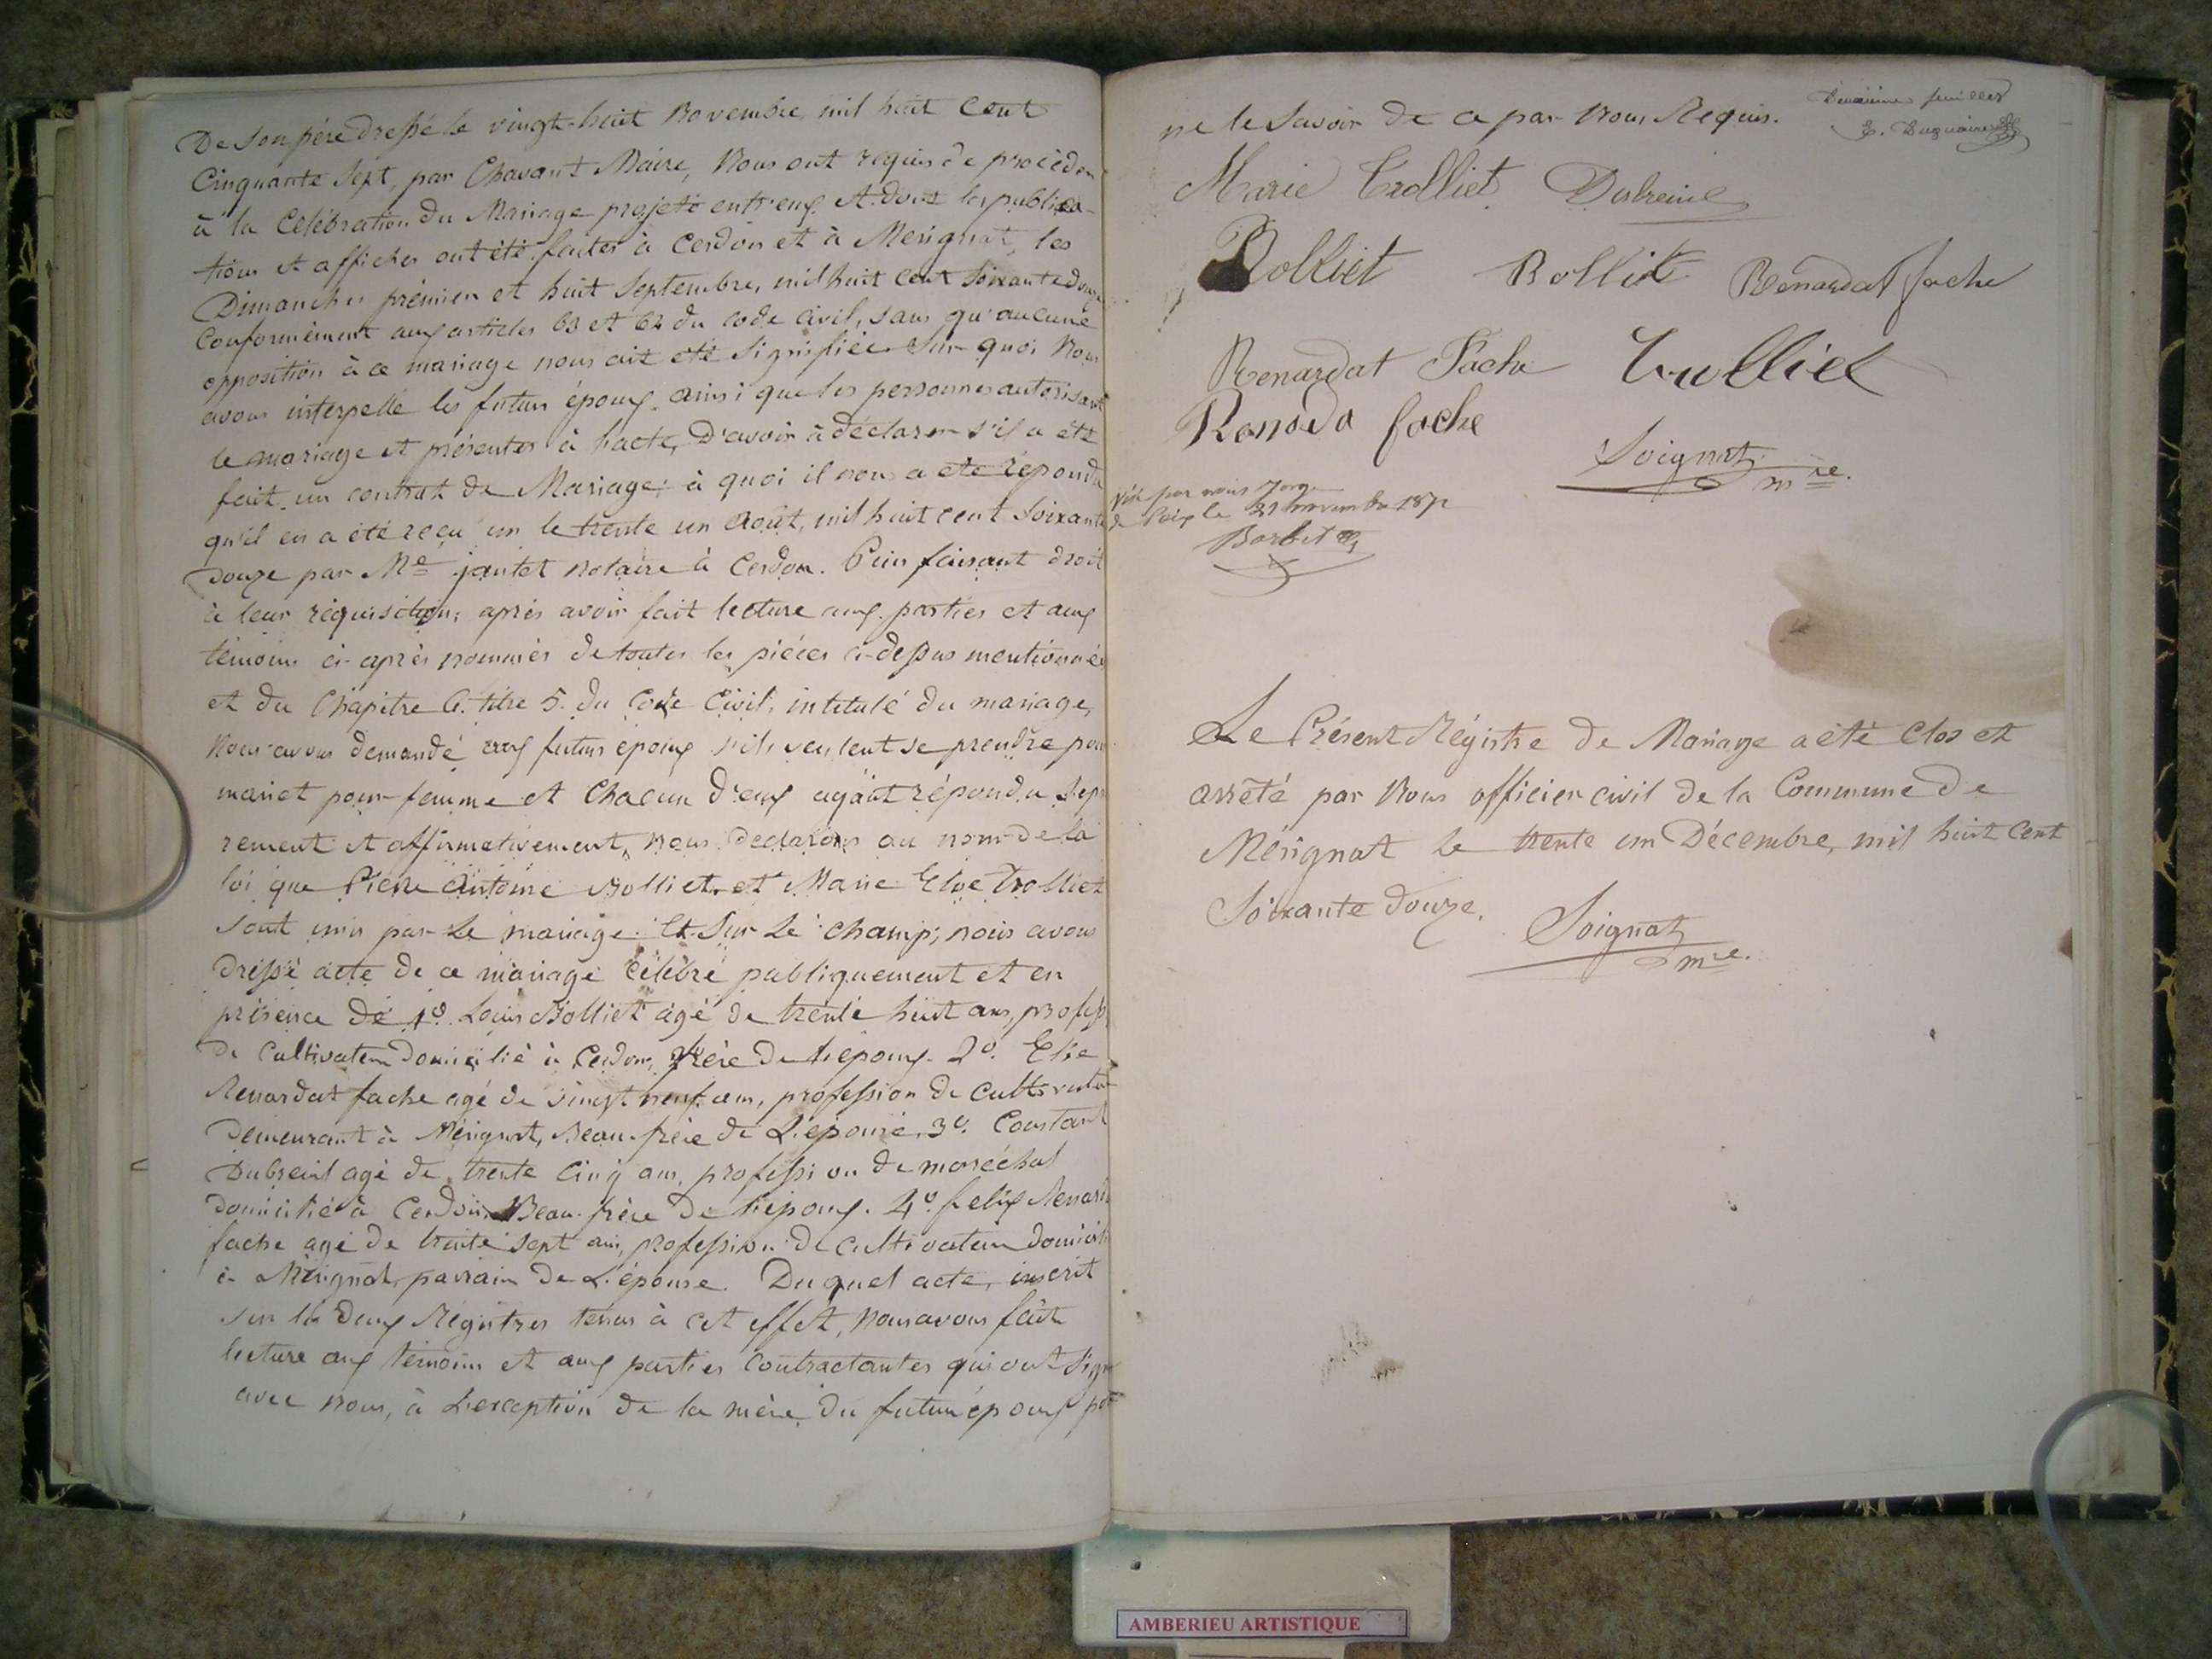 De son père dressé le vingt-huit Novembre, mil huit Cent
Cinquante Sept, par Chavant Maire, Nous ont requis de procéder
à la Célébration du Mariage projeté entr'eux. et dont les publica-
tions et affiches ont été faites à Cerdon et à Mérignat, les
Dimanches prémier et huit Septembre, mil huit cent Soixante douze
Conformément aux articles 63 et 64 du code Civil, sans qu'aucune
opposition à ce mariage nous ait été Signifiée. Sur quoi Nous
avons interpellé les futurs époux ainsi que les personnes autorisant
le mariage et présentes à l'acte, D'avoir à déclarer s'il a été
fait un contrat de Mariage; à quoi il nous a été répondu
qu'il en a été reçu un le trente un Août, mil huit cent Soixante
Douze par Me jantet Notaire à Cerdon. Puis faisant droit
à leur réquisition; après avoir fait lecture aux parties et aux
témoins ci-après nommés de toutes les pièces ci-dessus mentionnées
et du Chapitre 6. titre 5. du Code Civil, intitulé du mariage,
Nous avons demandé aux futurs époux s'ils veulent se prendre pour
mari et pour femme et Chacun d'eux ayant répondu Sépa
rement et affirmativement, nous declarons au nom de la
loi que Pierre Antoine Bolliet et Marie Trolliet
sont unis par Le mariage. Et Sur Le champ; nous avons
Dressé acte de ce mariage célébré publiquement et en
présence de 1º Louis Bolliet âgé de trente huit ans, profess
de Cultivateur domicilié à Cerdon, frère de l'époux. 2º. Elie
Renardat fache agé de vingt neuf ans, profession de Cultivateur
Demeurant à Mérignat, Beau-frère de L'épouse. 3º. Constant
Dubreuil agé de trente Cinq ans, profession de maréchal
domicilié à Cerdon, Beau-frère de l'époux. 4º. felix Renard
fache agé de trente sept ans, profession de Cultivateur domicili
à Mérignat, parrain de L'épouse. Duquel acte, inscrit
sur les deux Régistres tenus à cet effet, Nous avons fait
lecture aux témoins et aux parties Contractantes qui ont Signé
avec nous, à L'exception de la mère du futur époux pour
ne le Savoir de ce par Nous Requis.
Deuxième feuillet
Marie Trolliet Dubreuil
Bolliet Bolliet Renardat fache
Renardat Fache Trolliet
Renada fache
Soignat
mre.
Vu par nous Juge
de Paix le 21 novembre 1872
Le Présent Régistre de Mariage a été Clos et
arrêté par Nous officier civil de la Commune De
Mérignat le trente un Décembre, mil huit Cent
Soixante Douze.
Soignat
mre.
AMBERIEU ARTISTIQUE